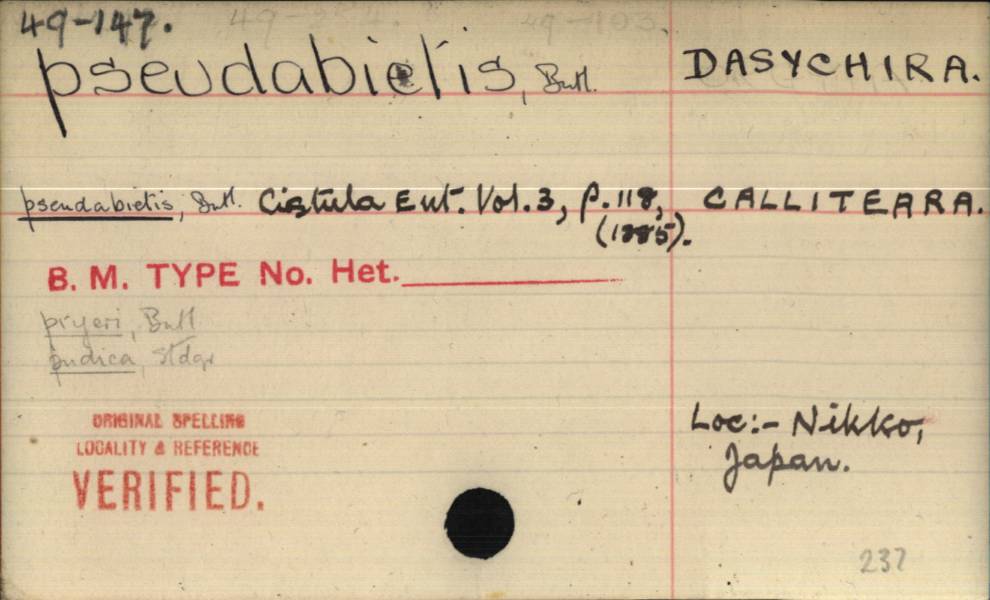 49-147.
pseudabietis, Butl. DASYCHIRA.
pseudabietis, Butl. Cistula Ent. Vol. 3, p. 118, CALLITEARA.
(1885).
B. M. TYPE No. Het.
pryeri, Butl
pudica, Stdgr
ORIGINAL SPELLING
LOCALITY & REFERENCE
VERIFIED.
Loc:- Nikko,
Japan.
237